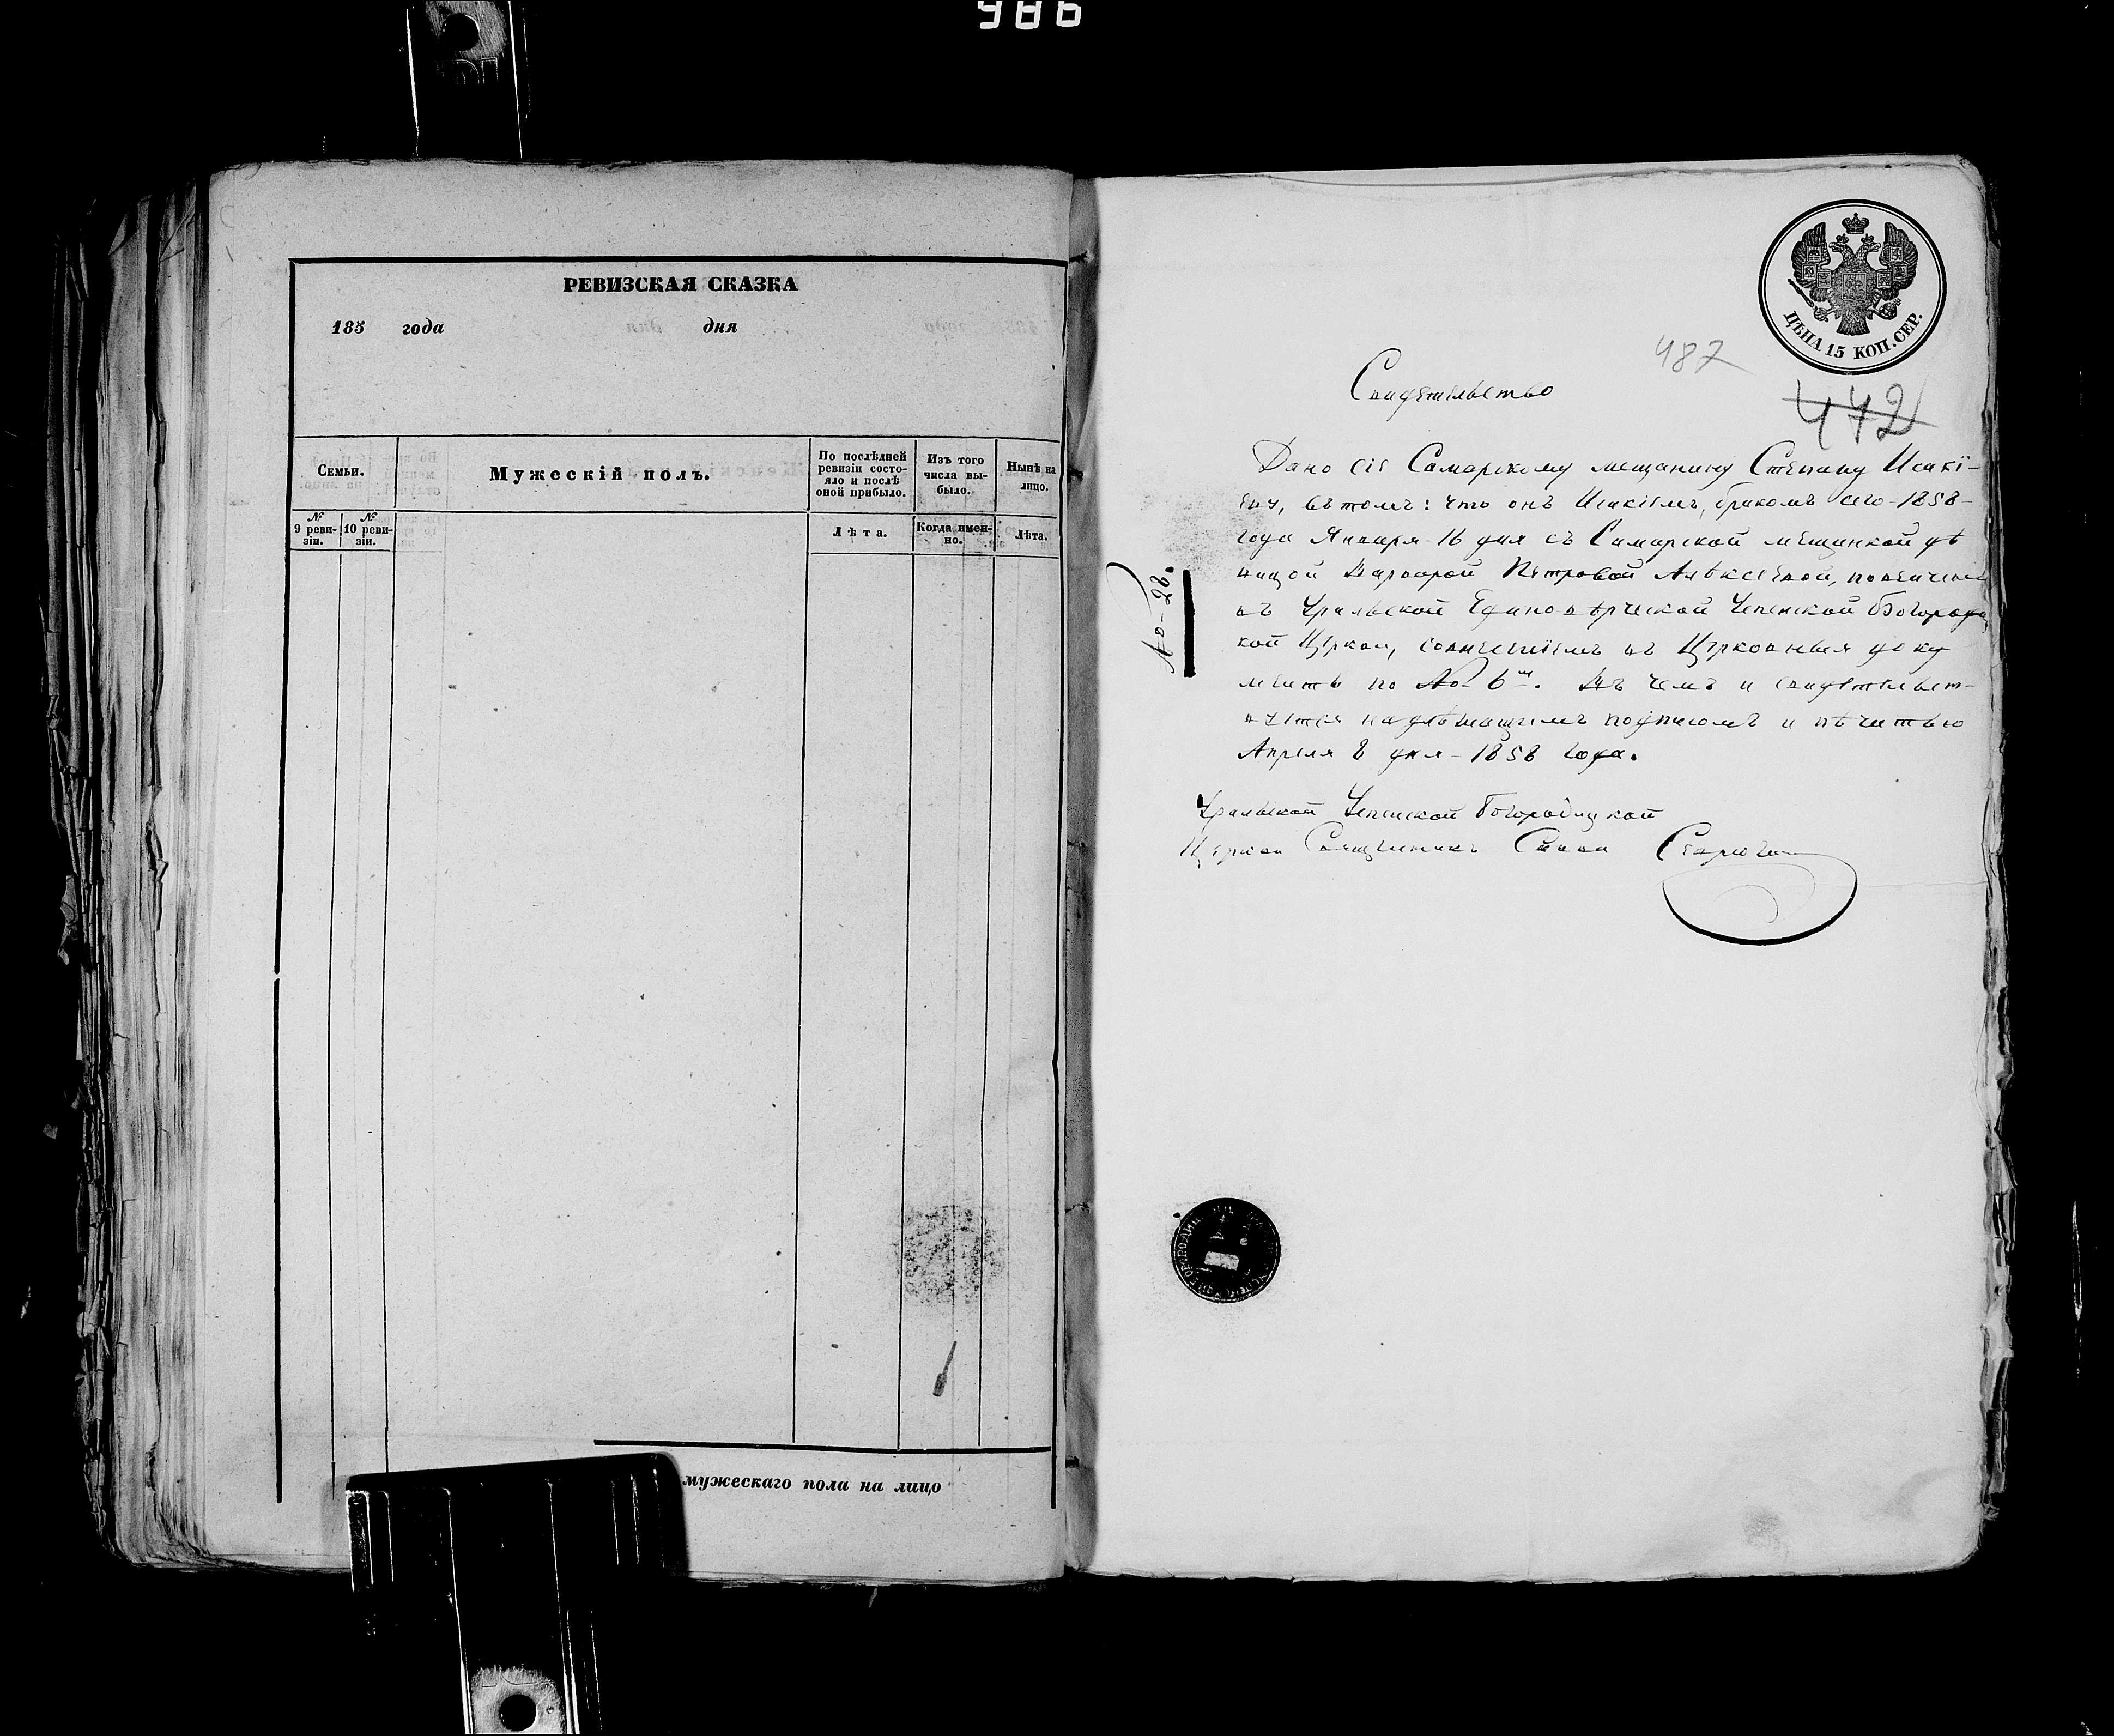 986
РЕВИЗСКАЯ СКАЗКА
185 года дня
Семьи.
Мужескій полъ.
По послѣдней
ревизіи состо-
яло и послѣ
оной прибыло.
Изъ того
числа вы-
было.
Нынѣ на
лицо.
№
9 реви-
зіи.
№
10 реви-
зіи.
Лѣта.
Когда имен-
но.
Лѣта.
мужескаго пола на лицо
ЦѢНА 15 КОП. СЕР.
487
442
Свидетельство
Дано сіе Самарскому мещанину Степану Исакі-
еву, въ томъ: что онъ Исакіемъ, бракомъ сего-1858-
года Января 16 дня съ Самарской мещанкой дѣ
вицой Варварой Петровой Алексеевой, повенчанъ
въ Уральской Единоверческой Успенской Богородиц
кой Церкви, совнесеніемъ въ Церковныя доку
менты по № 6й. Въ чемъ и свидетельст-
вуется надлежащимъ подписомъ и печатью
Апреля 8 дня - 1858 года.
№ 28.
Уральской Успенской Богородицкой
Церкви Священникъ Савва